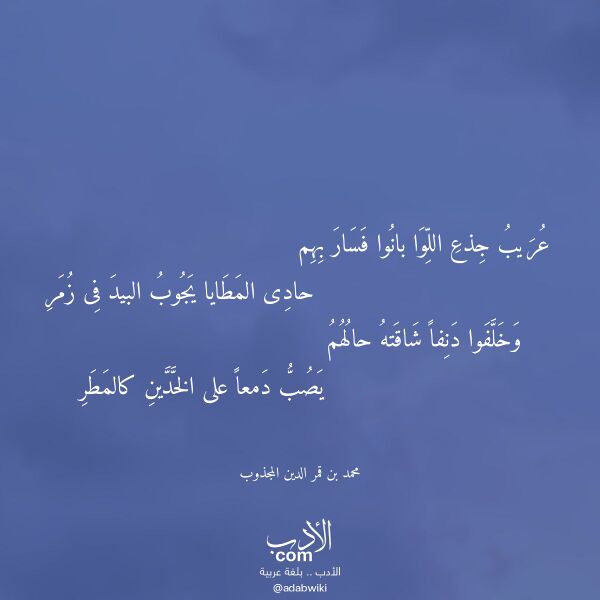 عُرَيبُ جِذعِ اللِّوَا بانُوا فَسَارَ بِهِم
حادِى المَطَايا يَجُوبُ البيدَ فِى زُمَرِ
وَخَلَّفَوا دَنِفاً شَاقَتهُ حالُهُمُ
يَصُبُّ دَمعاً على الخَدَّينِ كالمَطَرِ
محمد بن قمر الدين المجذوب
الأدب
com
الأدب .. بلغة عربية
@adabwiki